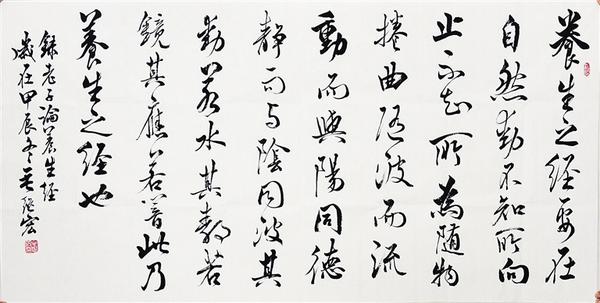 養生之經要在
自然動不知所向
止不知所為隨物
捲曲随波而流
動而與陽同德
静而与陰同波其
動若水其静若
鏡其應若響此乃
養生之經也
錄老子論養生經
歲在甲辰冬